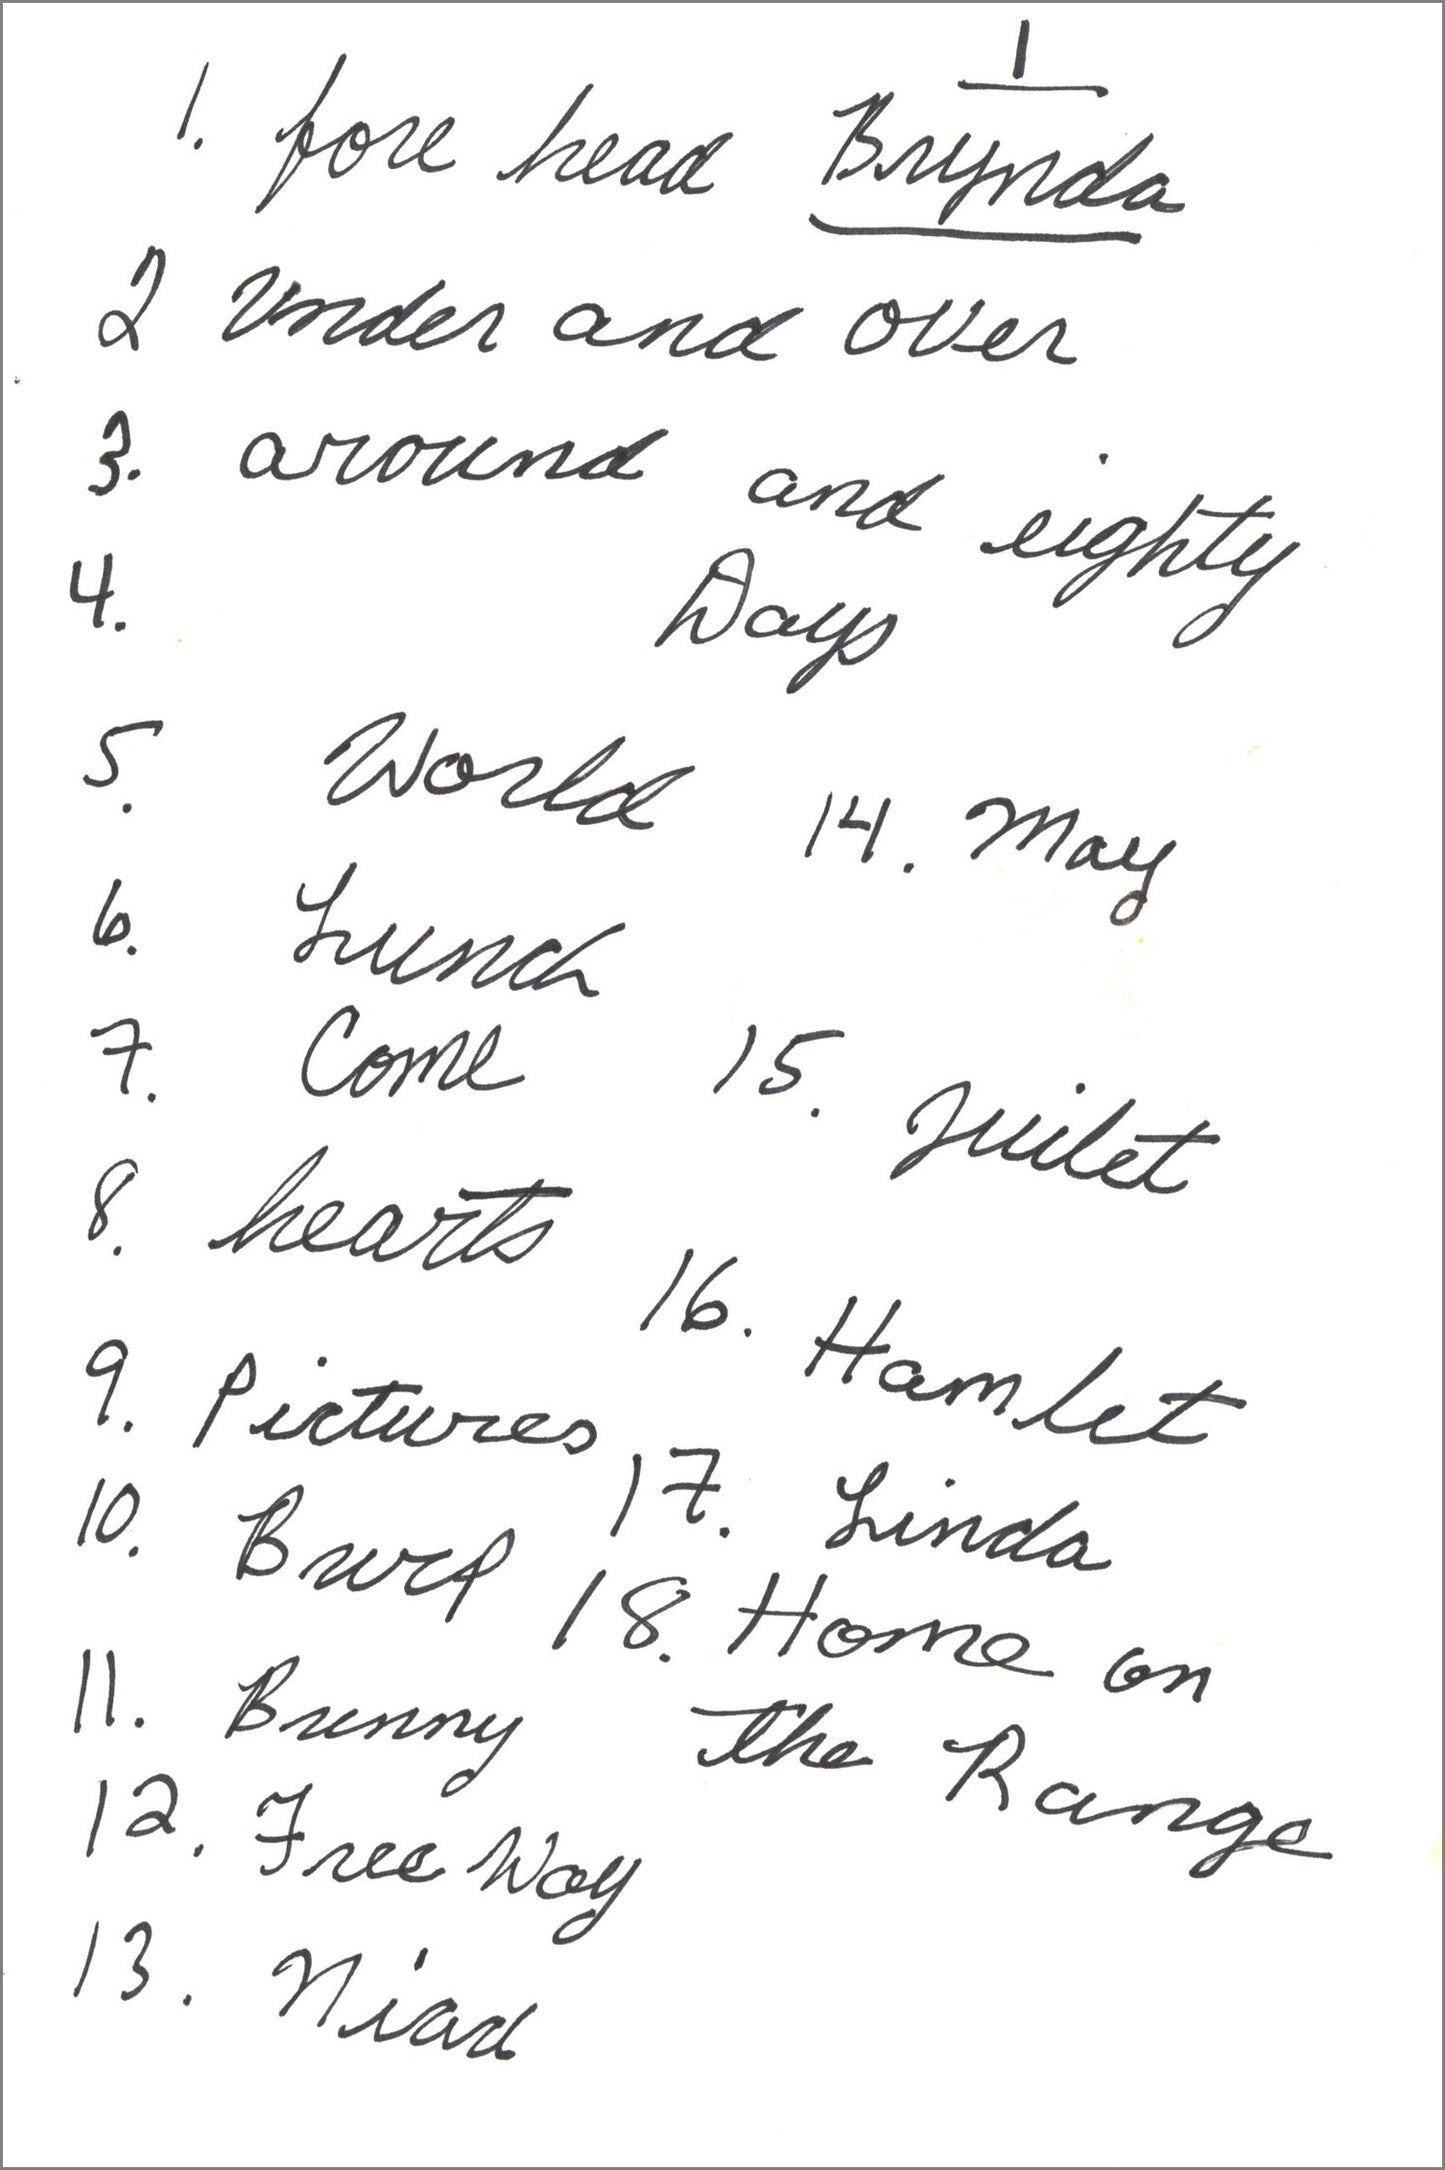 1
1. fore head Brynda
2 Under and over
3. around and eighty
4. Days
5. World
6. Lunch
7. Come
8. hearts
9. Pictures
10. Burp
11. Bunny
12. Free Way
13. Niad
14. May
15. Juilet
16. Hamlet
17. Linda
18. Home on
the Range